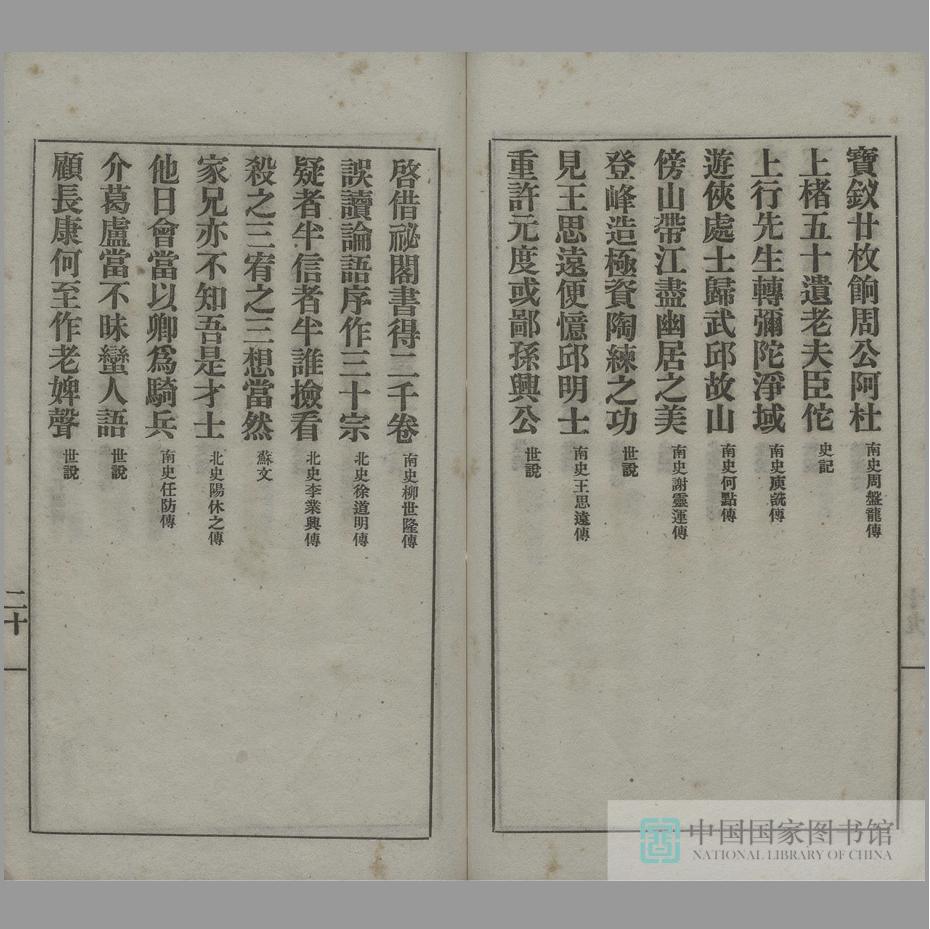 寶釵廿枚餉周公阿杜 南史周盤龍傳
上楮五十遺老夫臣佗 史記
上行先生轉彌陀淨域 南史庾詵傳
遊俠處士歸武邱故山 南史何點傳
傍山帶江盡幽居之美 南史謝靈運傳
登峰造極資陶練之功 世說
見王思遠便憶邱明士 南史王思遠傳
重許元度或鄙孫興公 世說
啓借祕閣書得二千卷 南史柳世隆傳
誤讀論語序作三十宗 北史徐道明傳
疑者半信者半誰撿看 北史李業興傳
殺之三宥之三想當然 蘇文
家兄亦不知吾是才士 北史陽休之傳
他日會當以卿爲騎兵 南史任昉傳
介葛盧當不昧蠻人語 世說
顧長康何至作老婢聲 世說
二十
中国国家图书馆
NATIONAL LIBRARY OF CHINA